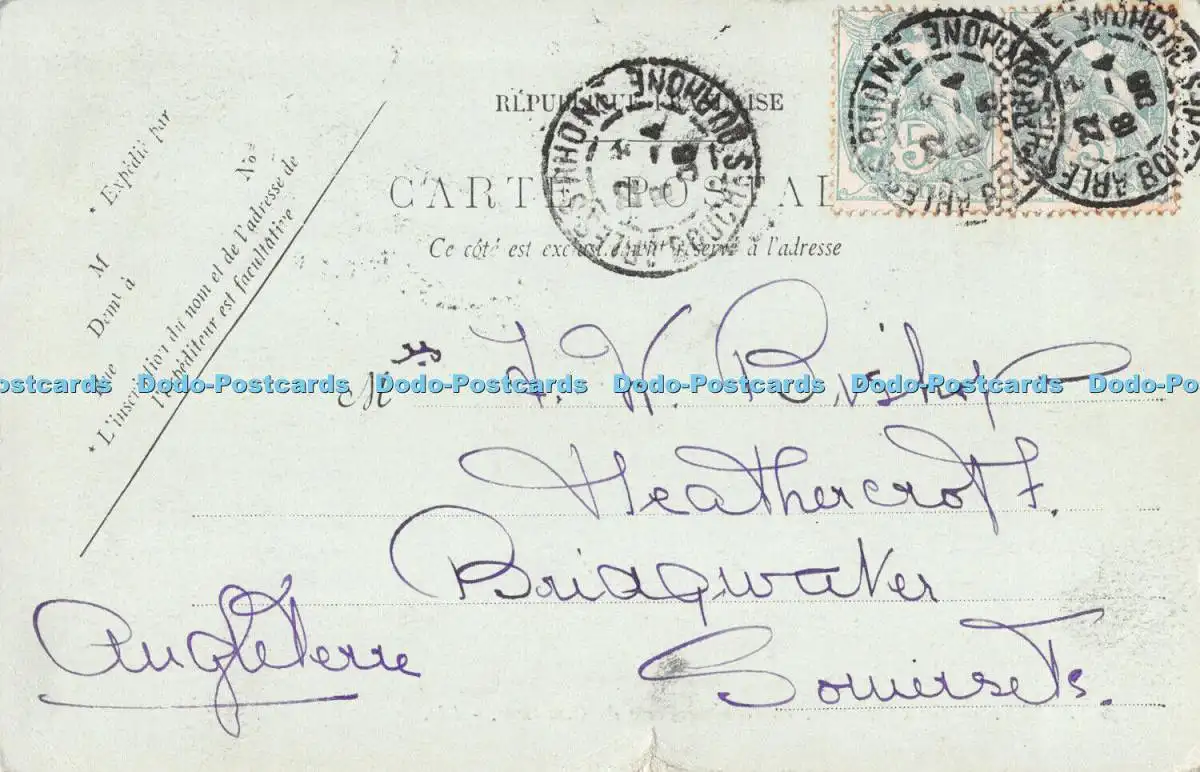 RÉPUBLIQUE FRANÇAISE
CARTE POSTALE
Ce côté est exclusivement réservé à l'adresse
* Expédié par
M
Demt à
Rue No
* L'inscription du nom et de l'adresse de
l'expéditeur est facultative
Mr F. W. Bishop
Heathercroft.
Bridgwater
Somersets.
Angleterre
5
5
ARLES-S-RHONE
BOUCHES DU RHONE
22
4
08
Dodo-Postcards Dodo-Postcards Dodo-Postcards Dodo-Postcards Dodo-Postcards Dodo-Postcards